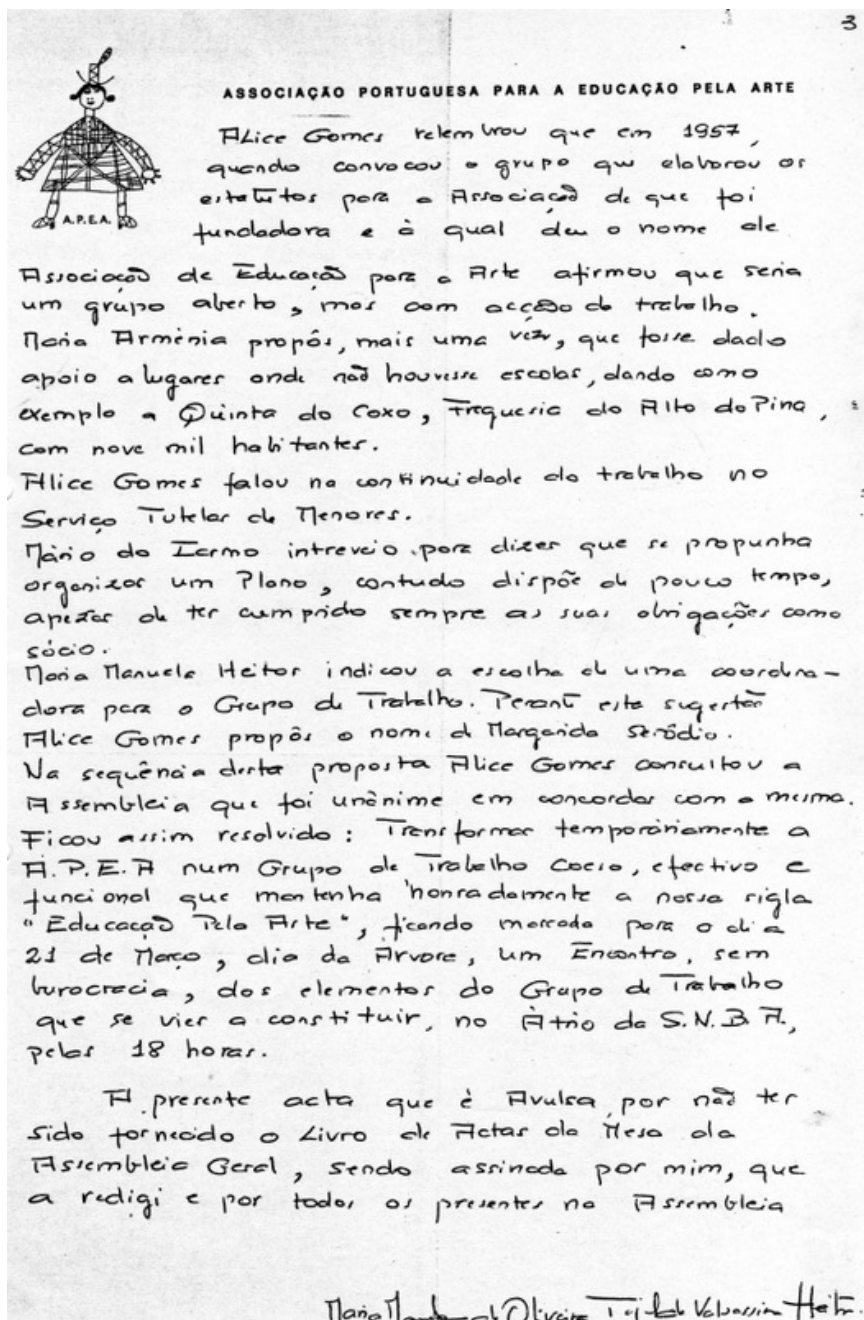 3
ASSOCIAÇÃO PORTUGUESA PARA A EDUCAÇÃO PELA ARTE
A.P.E.A.
Alice Gomes relembrou que em 1957,
quando convocou o grupo que elaborou os
estatutos para a Associação de que foi
fundadora e à qual deu o nome de
Associação de Educação para a Arte afirmou que seria
um grupo aberto, mas com acção de trabalho.
Maria Arménia propôs, mais uma vez, que fosse dado
apoio a lugares onde não houvesse escolas, dando como
exemplo a Quinta do Coxo, Freguesia do Alto do Pina,
com nove mil habitantes.
Alice Gomes falou na continuidade do trabalho no
Serviço Tutelar de Menores.
Mário do Carmo intreveio para dizer que se propunha
organizar um Plano, contudo dispõe de pouco tempo,
apezar de ter cumprido sempre as suas obrigações como
sócio.
Maria Manuela Heitor indicou a escolha de uma coordena-
dora para o Grupo de Trabalho. Perante esta sugestão
Alice Gomes propôs o nome de Margarida Seródio.
Na sequência desta proposta Alice Gomes consultou a
Assembleia que foi unânime em concordar com a mesma.
Ficou assim resolvido: Transformar temporáriamente a
A.P.E.A num Grupo de Trabalho Coeso, efectivo e
funcional que mantenha honradamente a nossa sigla
"Educação Pela Arte", ficando marcada para o dia
21 de Março, dia da Árvore, um Encontro, sem
burocracia, dos elementos do Grupo de Trabalho
que se vier a constituir, no Átrio da S.N.B.A.,
pelas 18 horas.
A presente acta que é Avulsa por não ter
sido fornecido o Livro de Actas da Mesa da
Assembleia Geral, sendo assinada por mim, que
a redigi e por todos os presentes na Assembleia
Maria de Oliveira Heitor